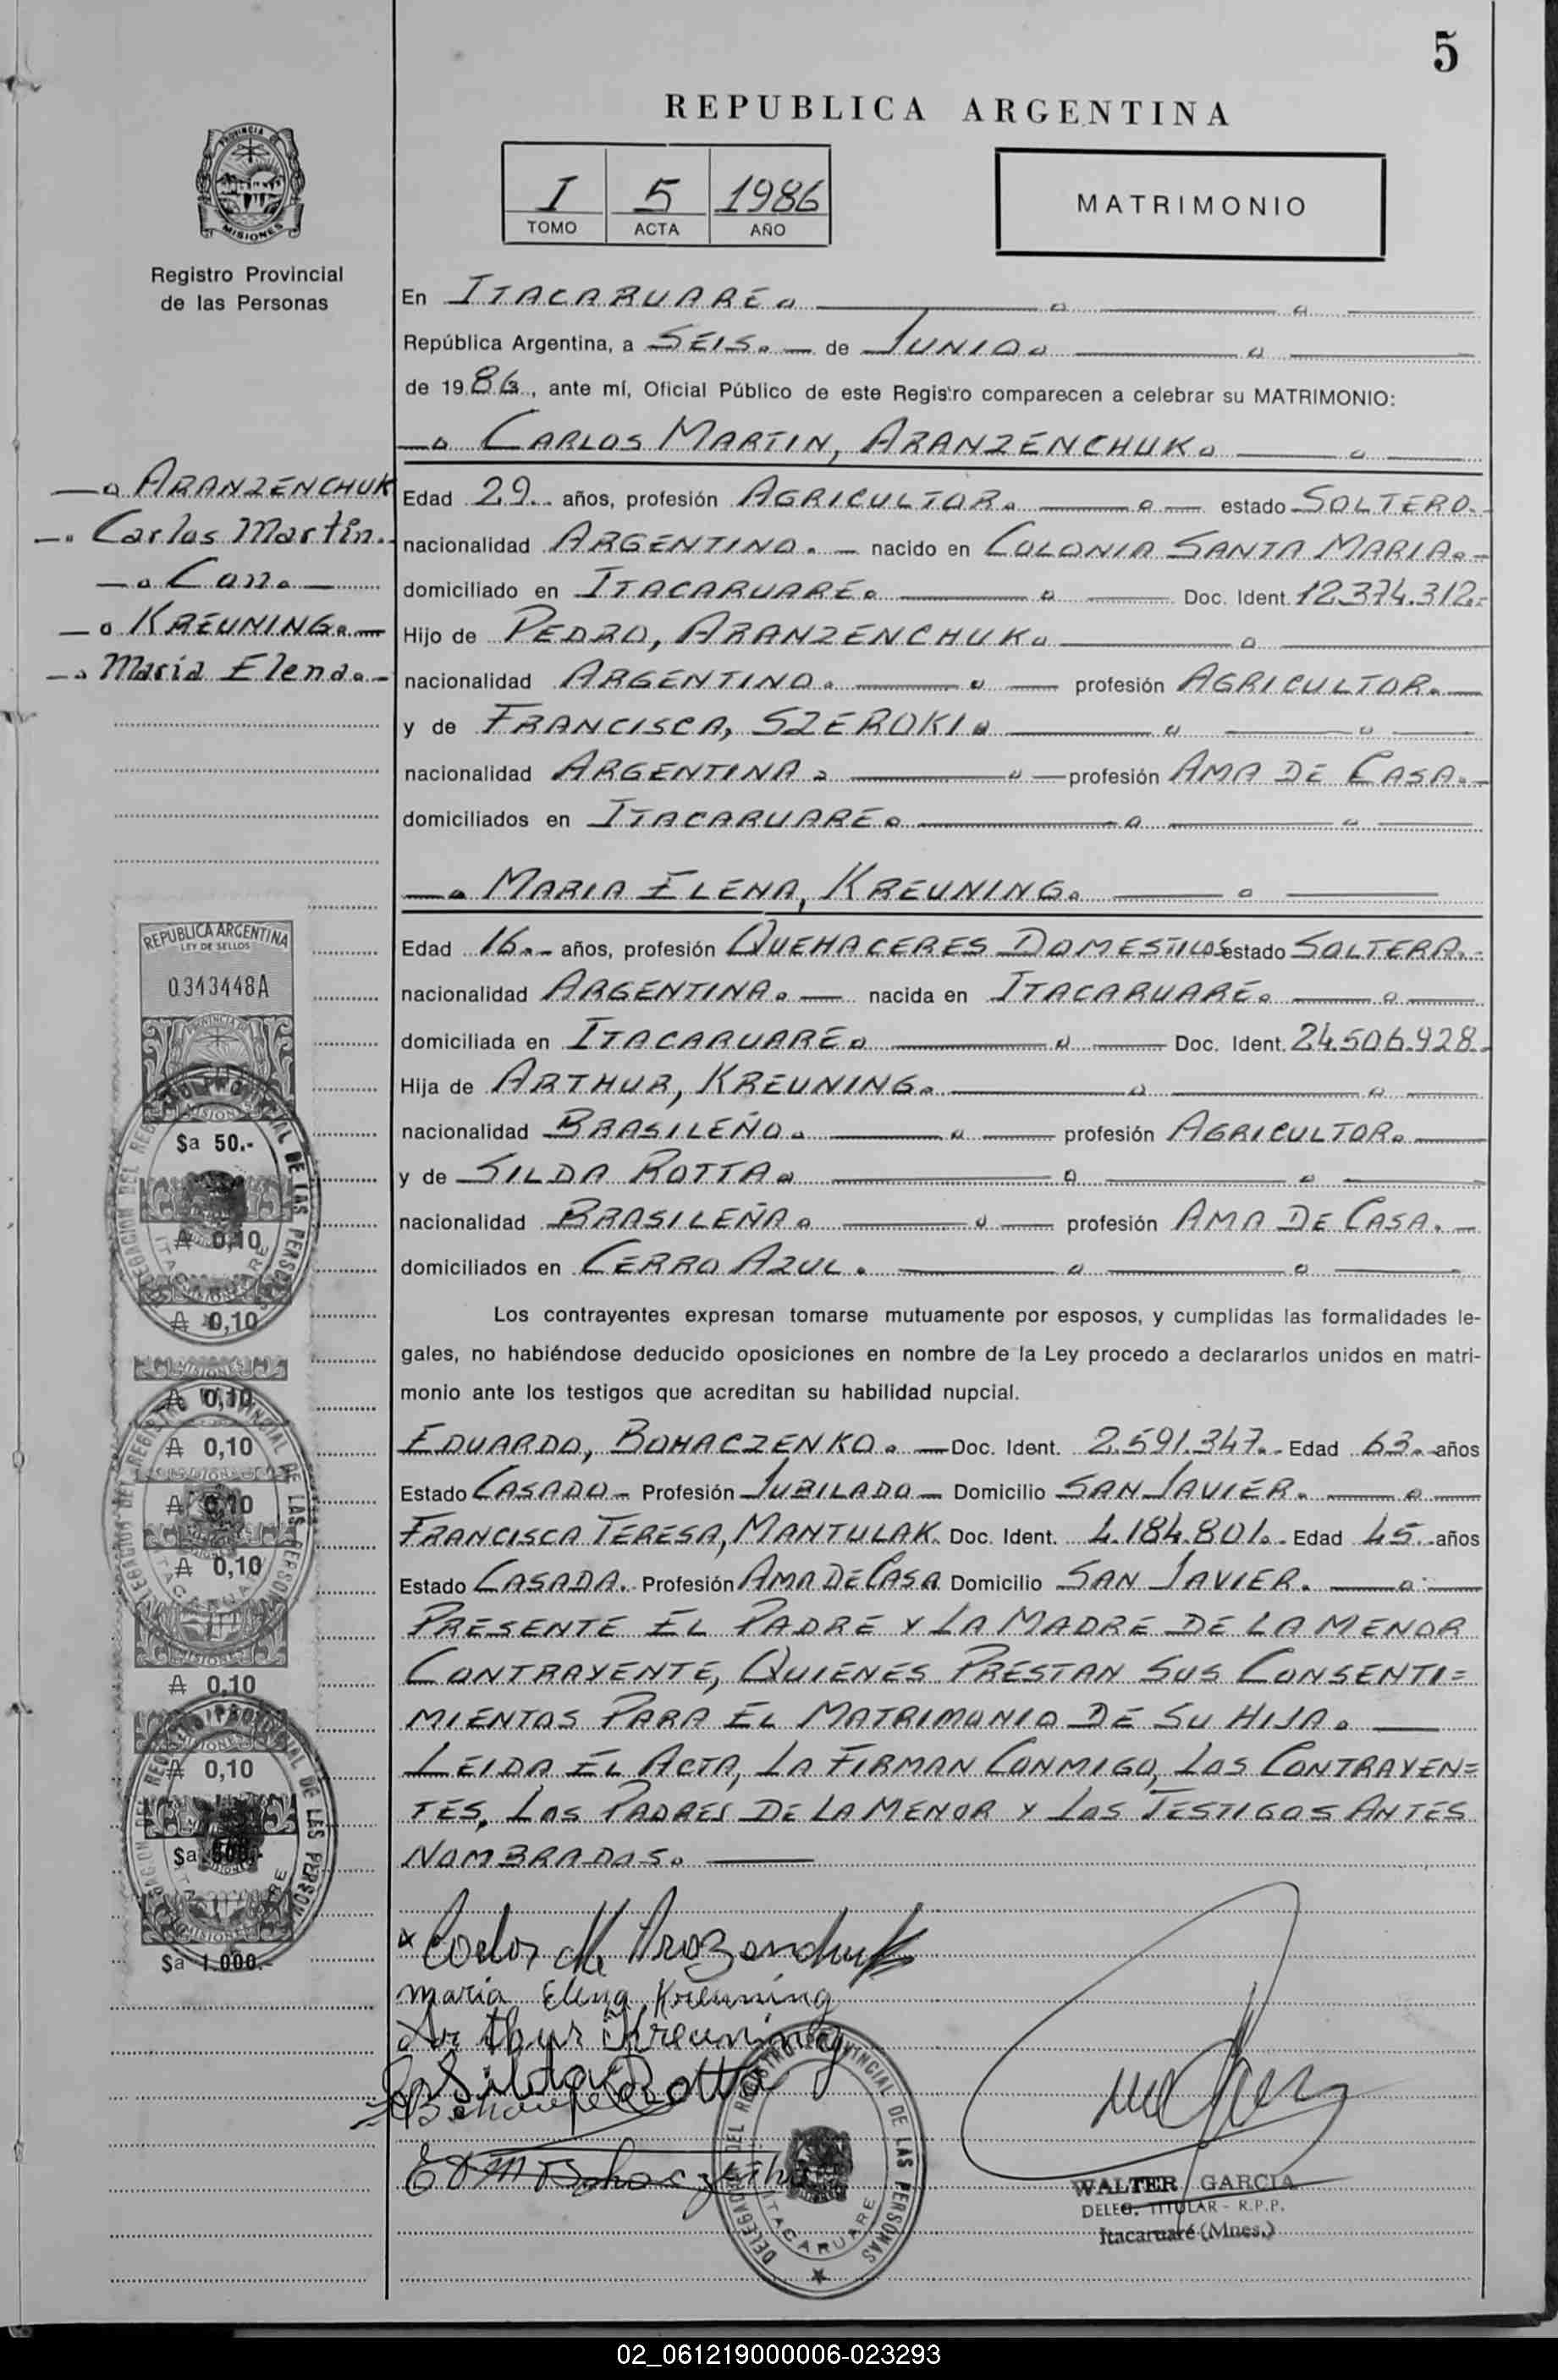 5
REPUBLICA ARGENTINA
I 5 1986
TOMO ACTA AÑO
MATRIMONIO
PROVINCIA DE
MISIONES
Registro Provincial
de las Personas
En ITACARUARÉ.
República Argentina, a SEIS. de JUNIO.
de 1986., ante mí, Oficial Público de este Registro comparecen a celebrar su MATRIMONIO:
CARLOS MARTIN, ARANZENCHUK.
ARANZENCHUK
Carlos Martín.
Con.
KREUNING.
María Elena.
Edad 29. años, profesión AGRICULTOR. estado SOLTERO.
nacionalidad ARGENTINO. nacido en COLONIA SANTA MARIA.
domiciliado en ITACARUARÉ. Doc. Ident. 12.374.312.
Hijo de PEDRO, ARANZENCHUK.
nacionalidad ARGENTINO. profesión AGRICULTOR.
y de FRANCISCA, SZEROKI.
nacionalidad ARGENTINA. profesión AMA DE CASA.
domiciliados en ITACARUARÉ.
MARIA ELENA, KREUNING.
Edad 16. años, profesión QUEHACERES DOMESTICOS estado SOLTERA.
nacionalidad ARGENTINA. nacida en ITACARUARÉ.
domiciliada en ITACARUARÉ. Doc. Ident. 24.506.928.
Hija de ARTHUR, KREUNING.
nacionalidad BRASILEÑO. profesión AGRICULTOR.
y de SILDA ROTTA.
nacionalidad BRASILEÑA. profesión AMA DE CASA.
domiciliados en CERRO AZUL.
Los contrayentes expresan tomarse mutuamente por esposos, y cumplidas las formalidades le-
gales, no habiéndose deducido oposiciones en nombre de la Ley procedo a declararlos unidos en matri-
monio ante los testigos que acreditan su habilidad nupcial.
EDUARDO, BOHACZENKO. Doc. Ident. 2.591.347. Edad 63. años
Estado CASADO Profesión JUBILADO Domicilio SAN JAVIER.
FRANCISCA TERESA, MANTULAK. Doc. Ident. 4.184.801. Edad 45. años
Estado CASADA. Profesión AMA DE CASA Domicilio SAN JAVIER.
PRESENTE EL PADRE Y LA MADRE DE LA MENOR
CONTRAYENTE, QUIENES PRESTAN SUS CONSENTI=
MIENTOS PARA EL MATRIMONIO DE SU HIJA.
LEIDA EL ACTA, LA FIRMAN CONMIGO, LOS CONTRAYEN=
TES, LOS PADRES DE LA MENOR Y LOS TESTIGOS ANTES
NOMBRADOS.
REPUBLICA ARGENTINA
LEY DE SELLOS
0343448A
$a 50.-
A 0,10
A 0,10
A 0,10
A 0,10
A 0,10
A 0,10
A 0,10
A 0,10
$a 1.000.-
Carlos M Aranzenchuk
maria Elena Kreuning
Arthur Kreuning
Silda Rotta
DELEGACION DEL REGISTRO PROVINCIAL DE LAS PERSONAS
ITACARUARE
WALTER GARCIA
DELEG. TITULAR - R.P.P.
Itacaruaré (Mnes.)
02_061219000006-023293